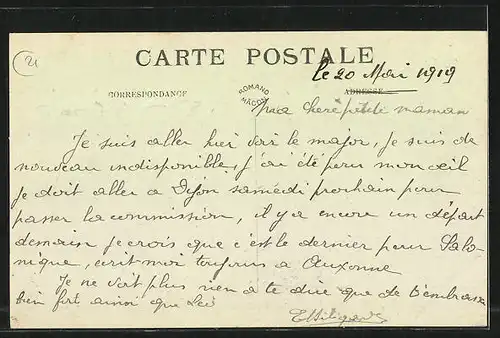 CARTE POSTALE
le 20 Mai 1919
CORRESPONDANCE
ROMAND MACON
ADRESSE
Ma chere petite maman
Je suis aller hier voir le major, je suis de
nouveau indisponible, j'ai été pour mon oeil
je doit aller a Dijon samedi prochain pour
passer la commission, il y a encore un départ
demain je crois que c'est le dernier pour Salo-
nique, ecrit moi toujours a Auxonne
Je ne voit plus rien a te dire que de t'embrasser
bien fort ainsi que